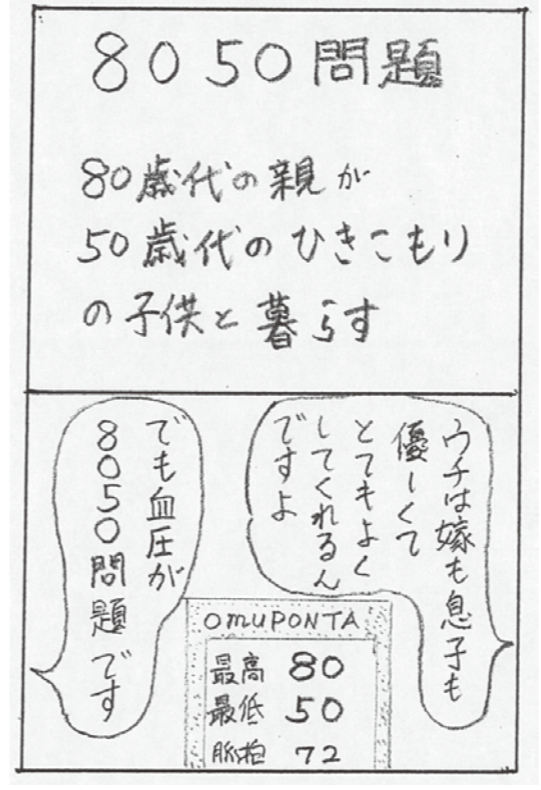 8050問題
80歳代の親が
50歳代のひきこもり
の子供と暮らす
ウチは嫁も息子も
優しくて
とてもよく
してくれるん
ですよ
でも血圧が
8050問題です
OMUPONTA
最高 80
最低 50
脈拍 72